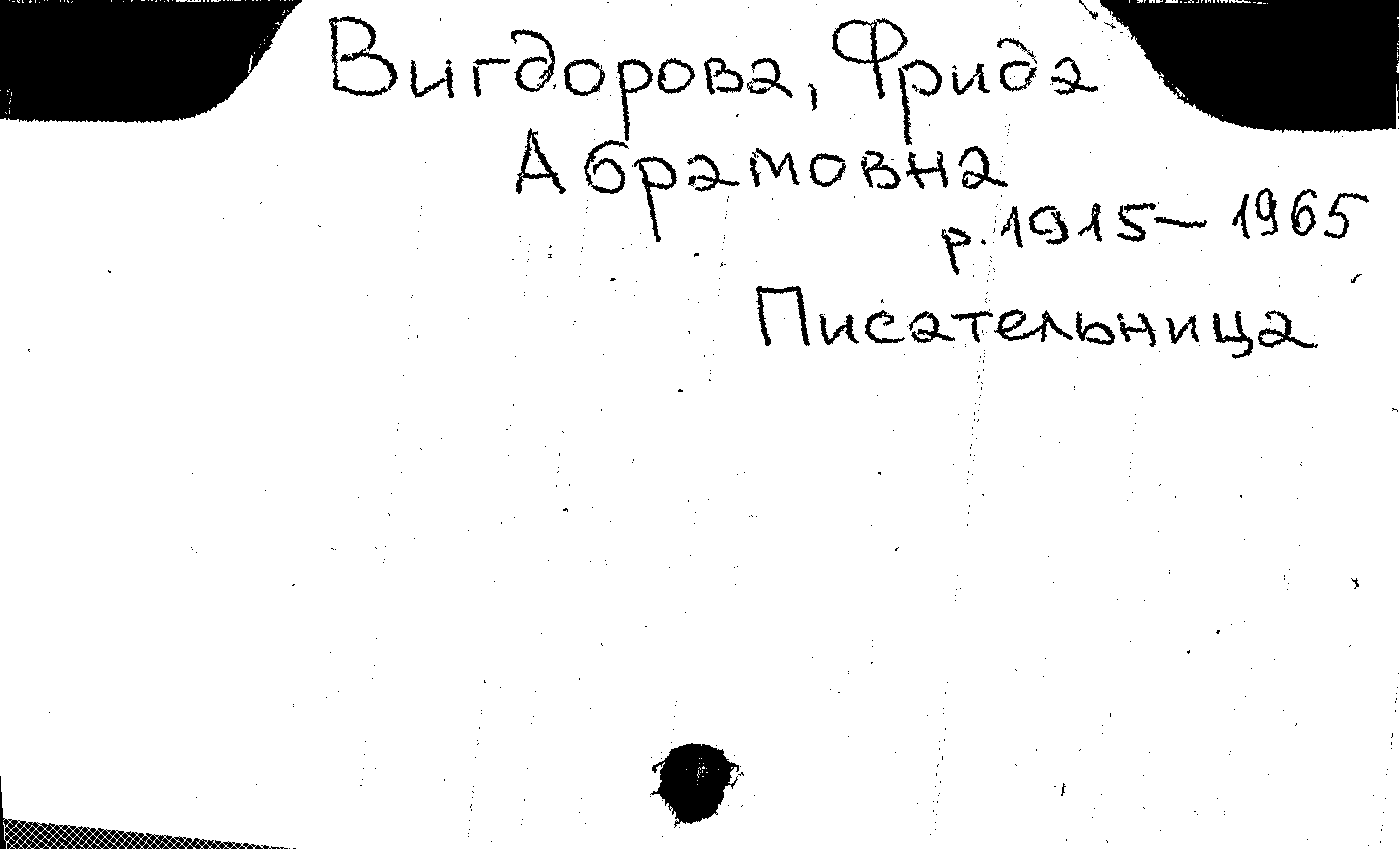 Вигдорова, Фрида
Абрамовна
р. 1915 — 1965
Писательница